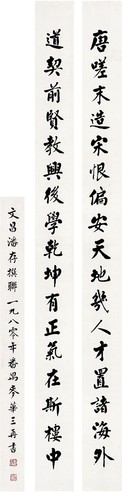 唐嗟末造宋恨偏安天地幾人才置諸海外
道契前賢教興後學乾坤有正氣在斯樓中
文昌潘存撰聯一九八零年番禺麥華三再書